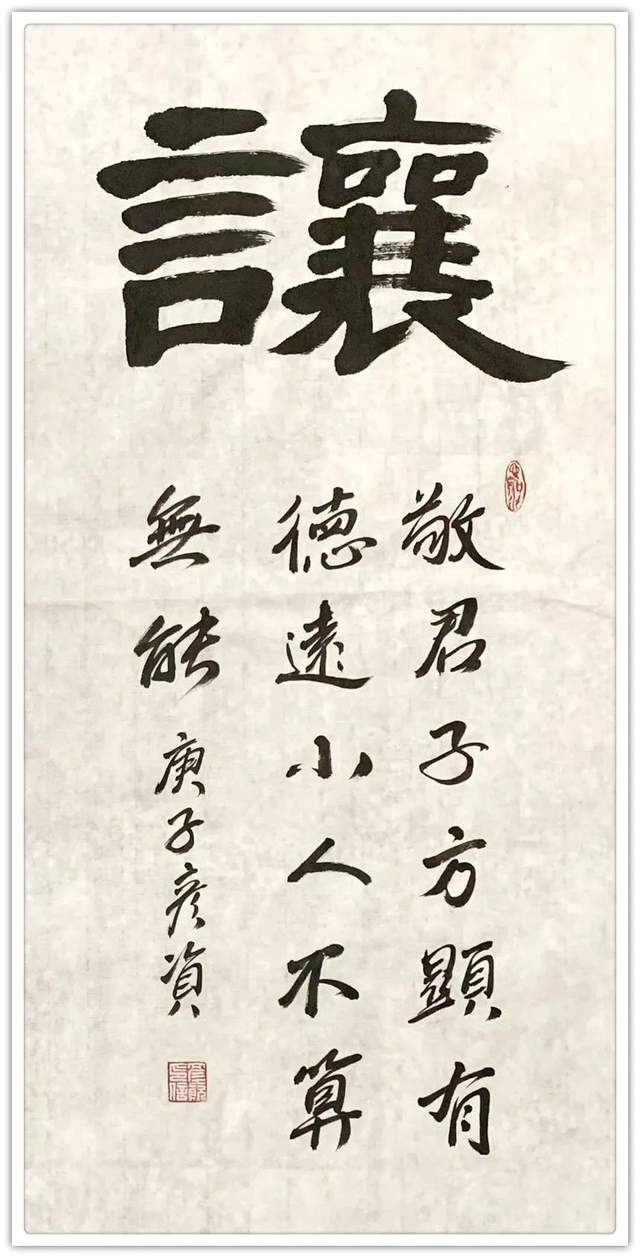 讓
敬君子方顯有
德遠小人不算
無能
庚子彥資